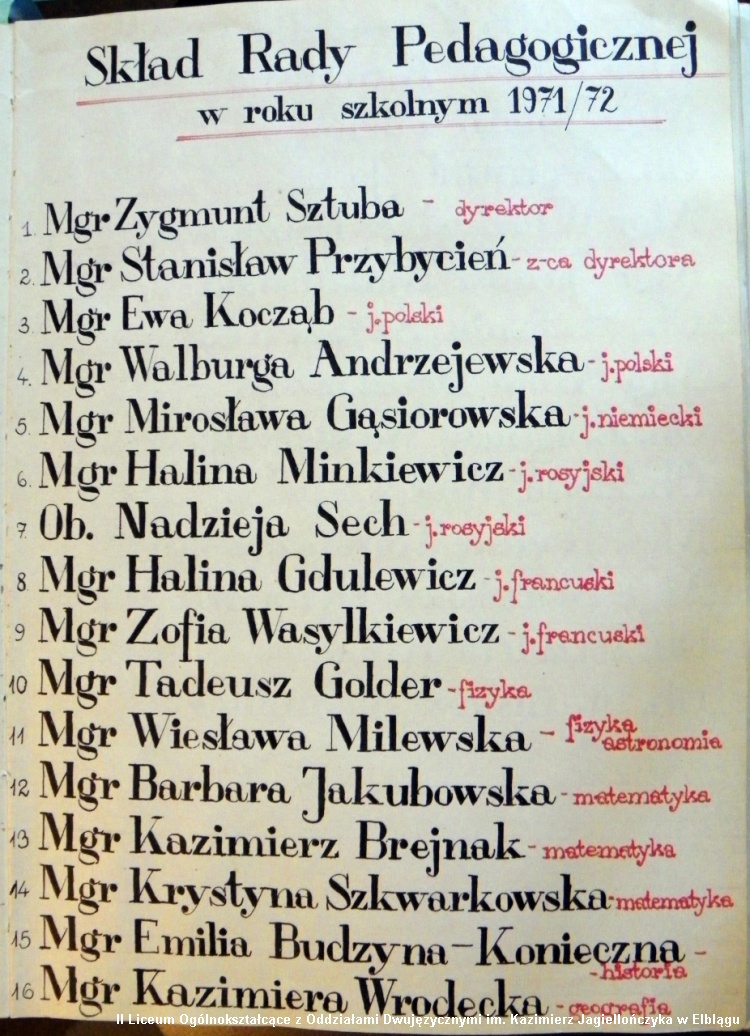 Skład Rady Pedagogicznej
w roku szkolnym 1971/72
1. Mgr Zygmunt Sztuba - dyrektor
2. Mgr Stanisław Przybycień - z-ca dyrektora
3. Mgr Ewa Kocząb - j.polski
4. Mgr Walburga Andrzejewska - j.polski
5. Mgr Mirosława Gąsiorowska - j.niemiecki
6. Mgr Halina Minkiewicz - j.rosyjski
7 Ob. Nadzieja Sech - j.rosyjski
8 Mgr Halina Gdulewicz - j.francuski
9 Mgr Zofia Wasylkiewicz - j.francuski
10 Mgr Tadeusz Golder - fizyka
11 Mgr Wiesława Milewska - fizyka
astronomia
12 Mgr Barbara Jakubowska - matematyka
13 Mgr Kazimierz Brejnak - matematyka
14 Mgr Krystyna Szkwarkowska - matematyka
15 Mgr Emilia Budzyna-Konieczna -
- historia
16 Mgr Kazimiera Wrodecka - geografia
II Liceum Ogólnokształcące z Oddziałami Dwujęzycznymi im. Kazimierz Jagiellończyka w Elblągu